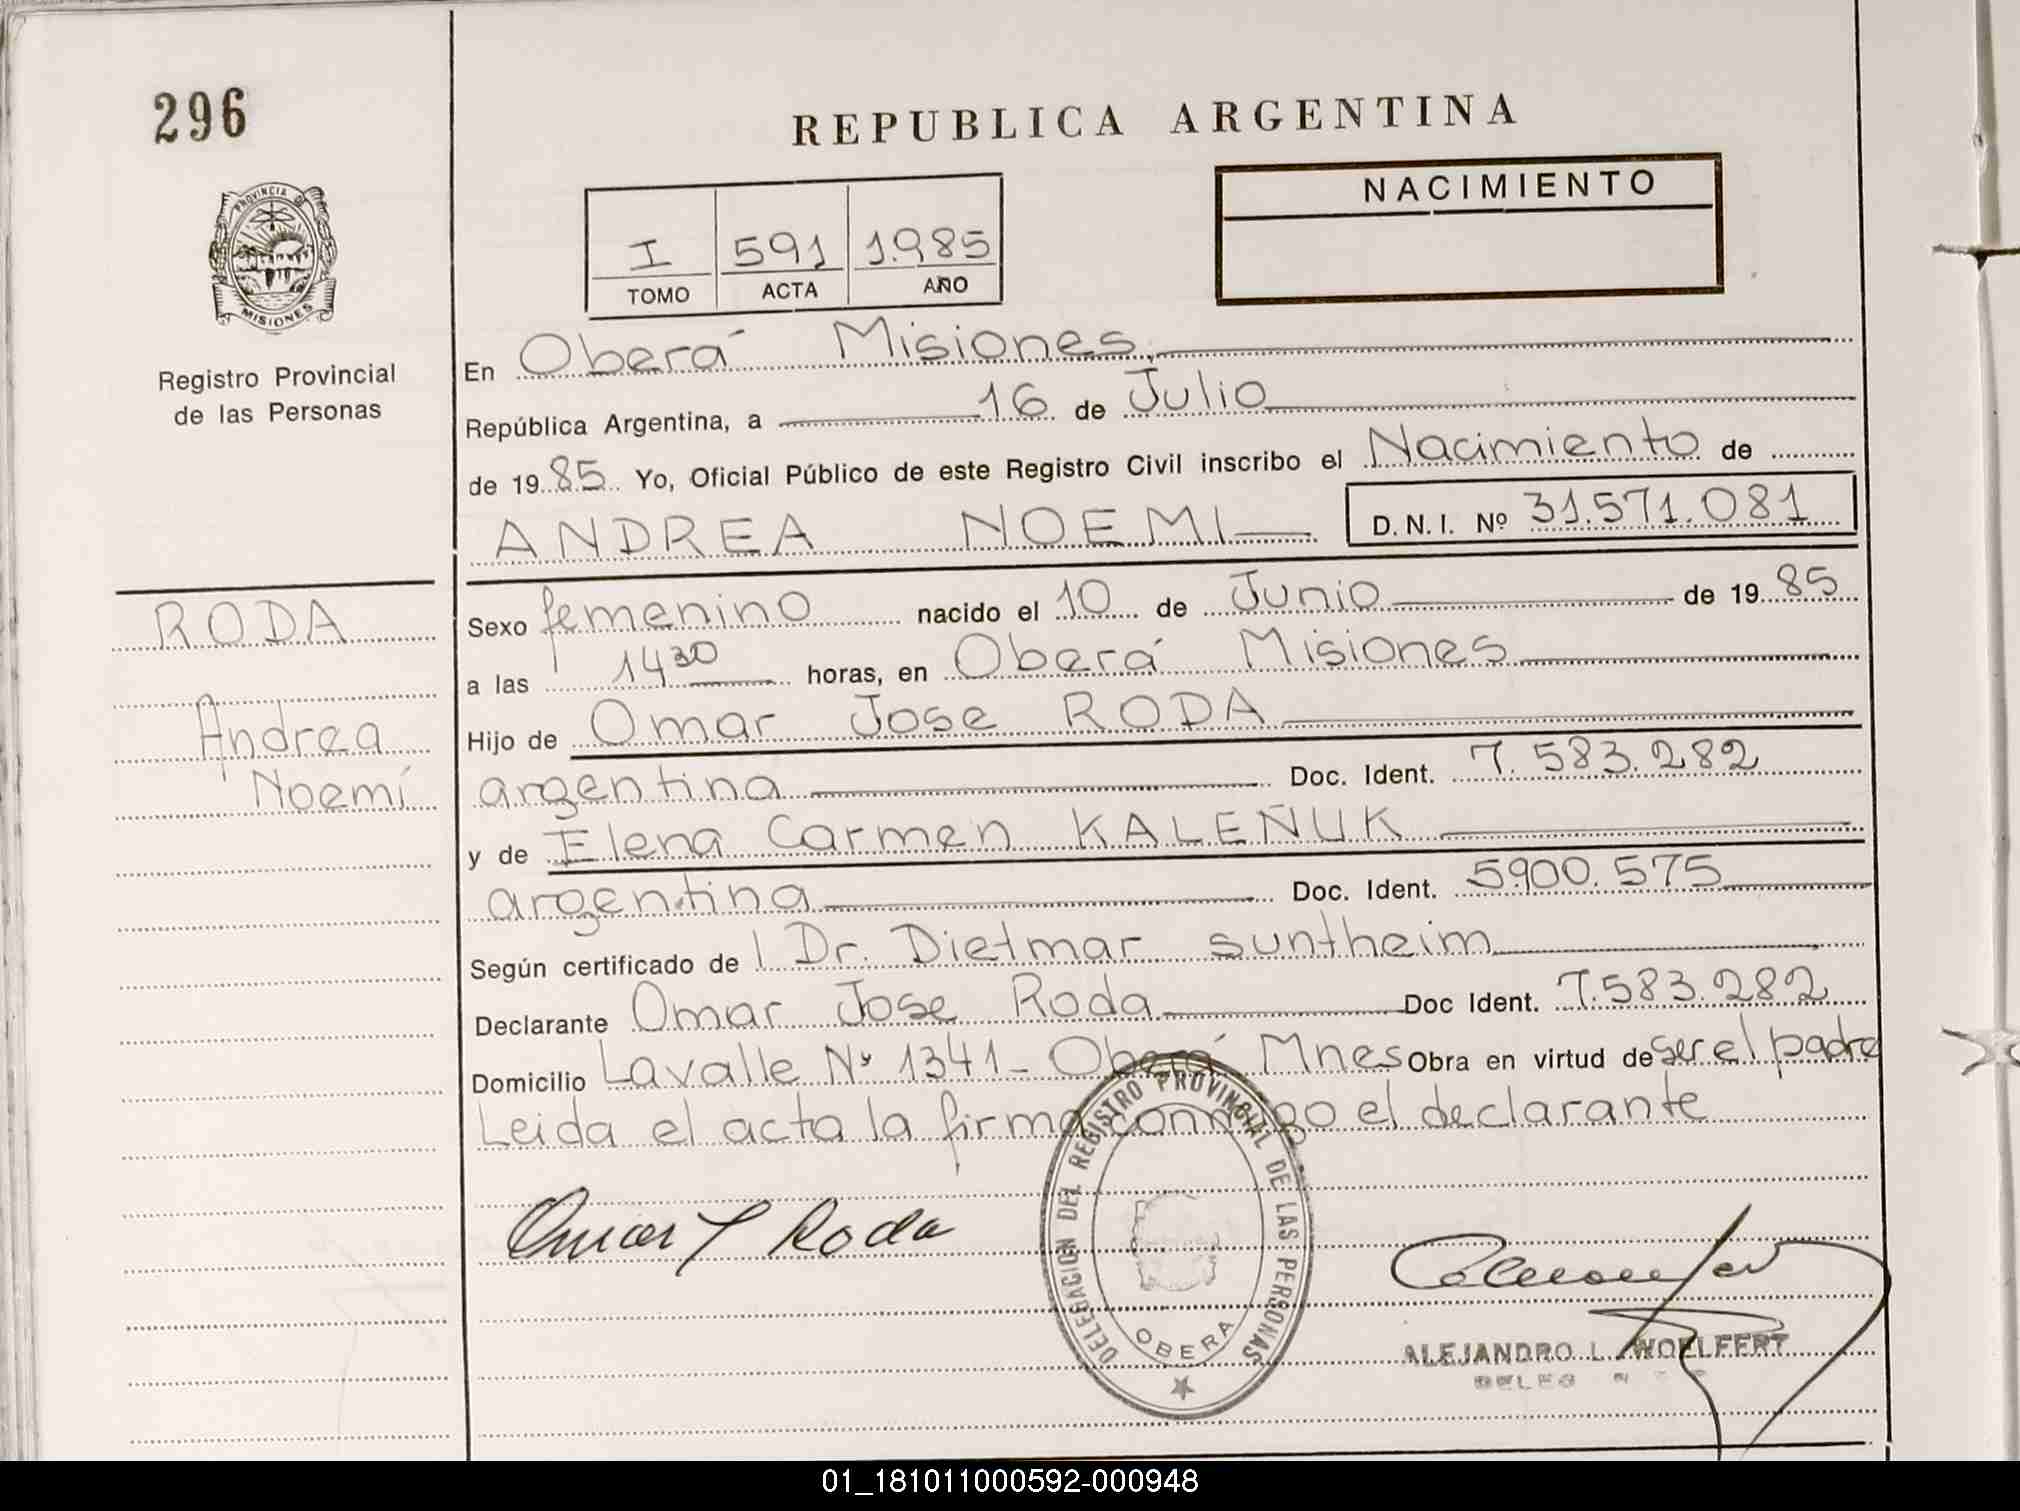 296
PROVINCIA DE
MISIONES
Registro Provincial
de las Personas
RODA
Andrea
Noemí
REPUBLICA ARGENTINA
I 591 1.985
TOMO ACTA AÑO
NACIMIENTO
En Oberá Misiones,
República Argentina, a 16 de Julio
de 1985 Yo, Oficial Público de este Registro Civil inscribo el Nacimiento de
ANDREA NOEMI D.N.I. Nº 31.571.081
Sexo femenino nacido el 10 de Junio de 1985
a las 14 30 horas, en Oberá Misiones
Hijo de Omar Jose RODA
argentina Doc. Ident. 7.583.282
y de Elena Carmen KALEÑUK
argentina Doc. Ident. 5900.575
Según certificado de l Dr. Dietmar suntheim
Declarante Omar Jose Roda Doc Ident. 7.583.282
Domicilio Lavalle Nº 1341_ Oberá Mnes Obra en virtud de ser el padre
Leida el acta la firma conmigo el declarante
Omar J Roda
DELEGACION DEL REGISTRO PROVINCIAL DE LAS PERSONAS
OBERA
ALEJANDRO L. WOELFERT
01_181011000592-000948